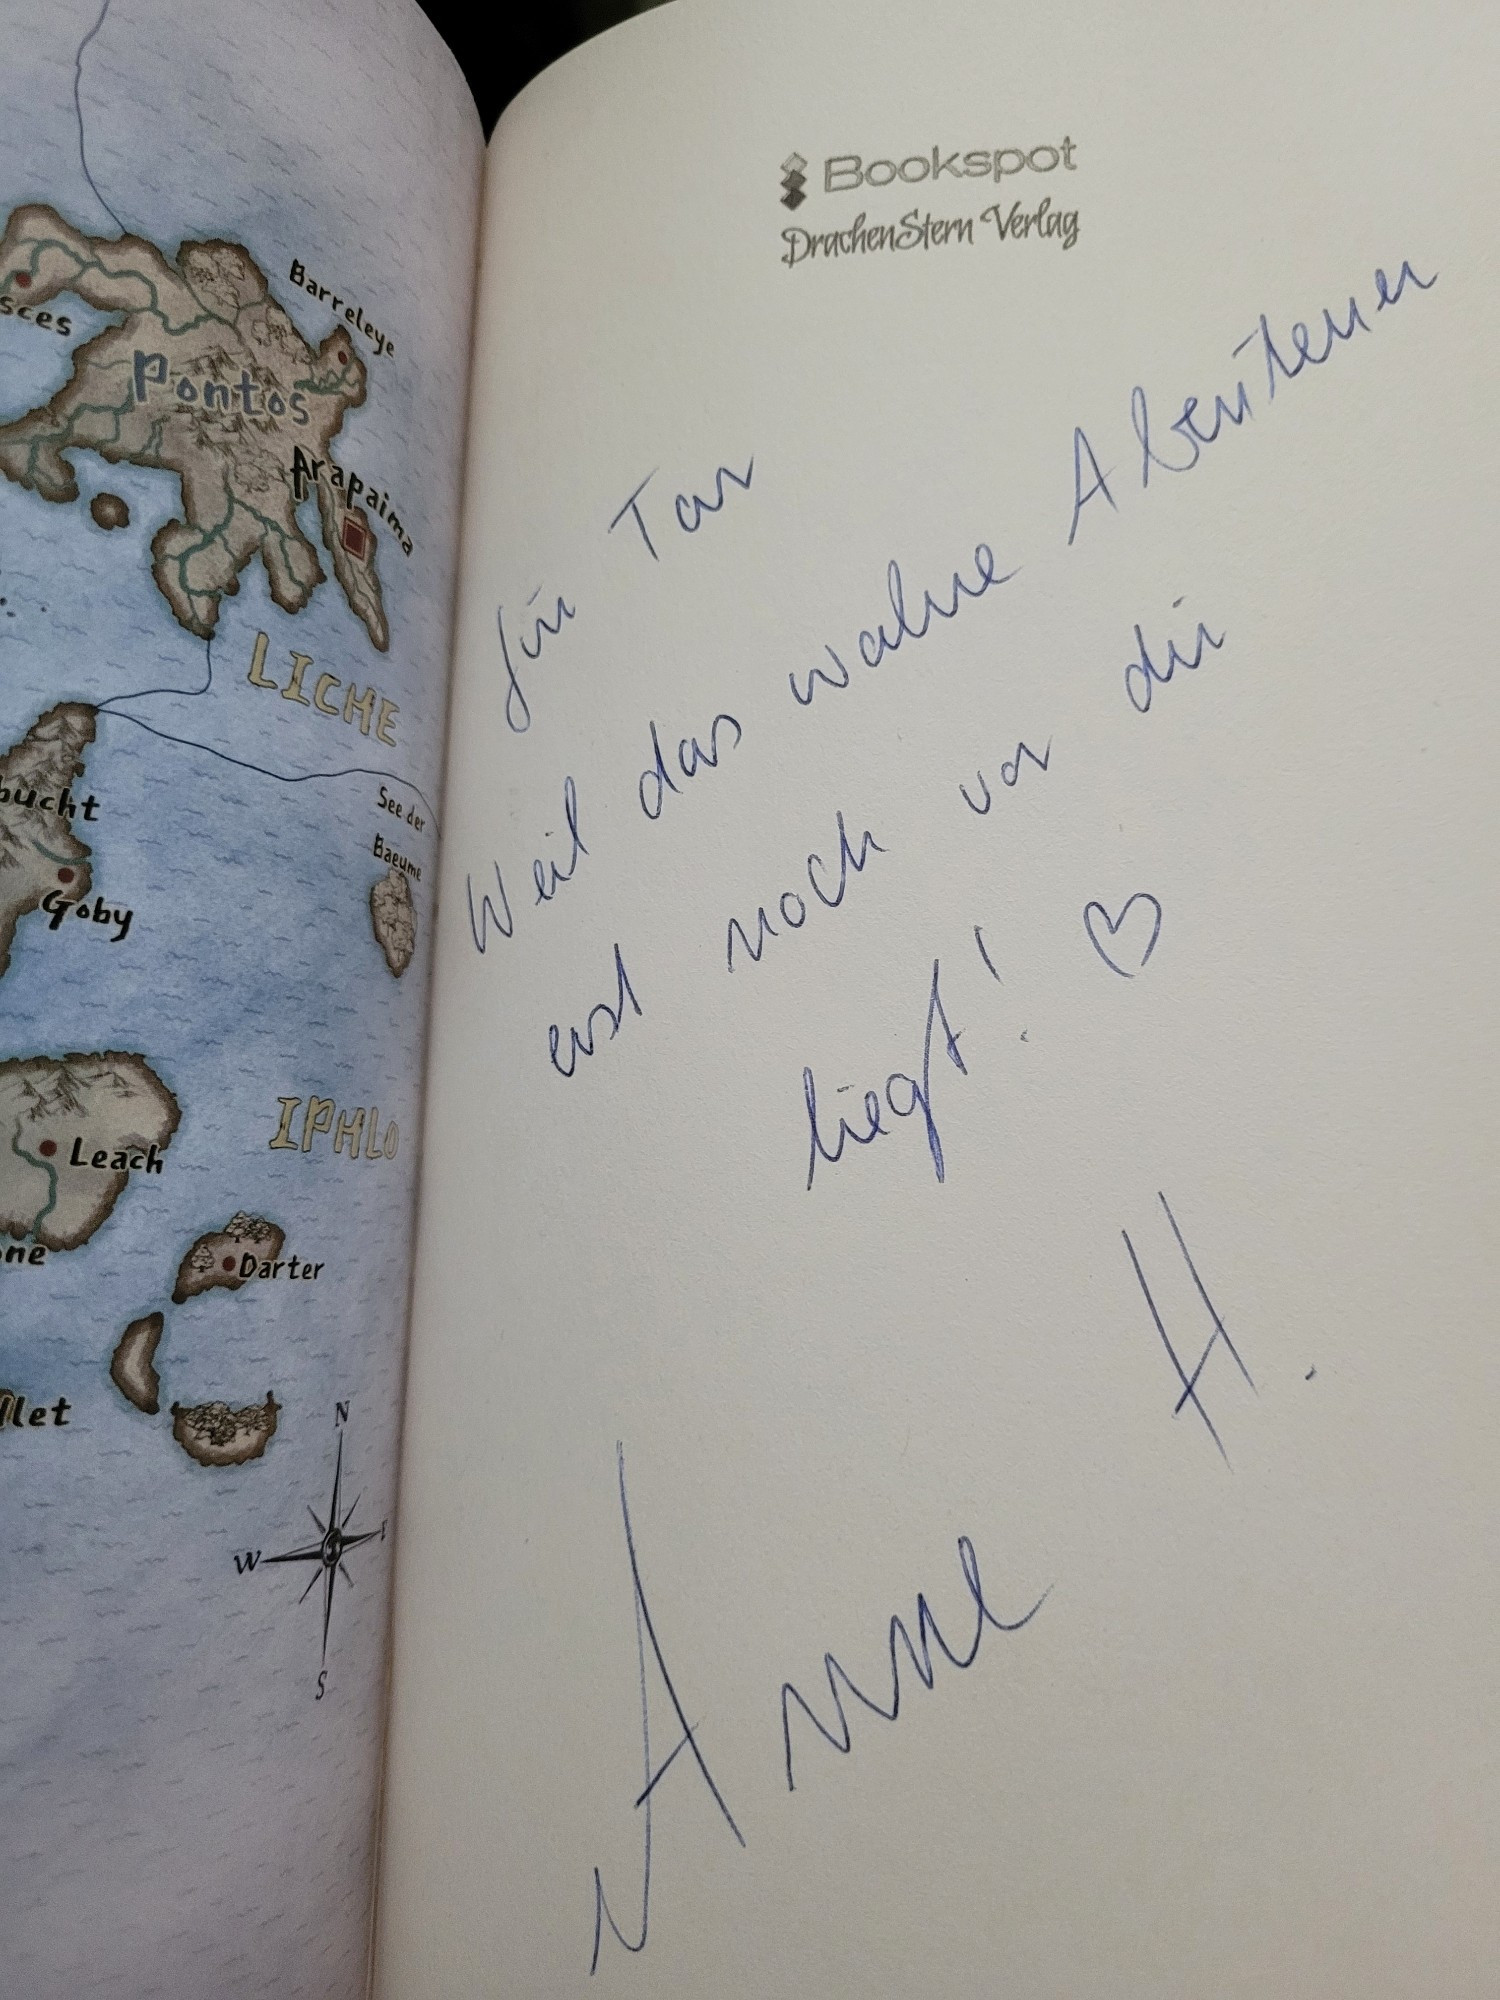 Barreleye
sces
Pontos
Arapaima
LICHE
bucht
See der
Baeume
Goby
IPHLO
Leach
ne
Darter
llet
N
W
E
S
Bookspot
DrachenStern Verlag
für Tar
Weil das wahre Abenteuer
erst noch vor dir
liegt! ♡
Anne H.